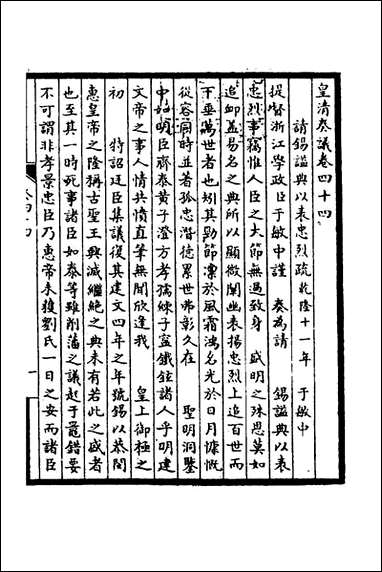 皇清奏議卷四十四
請錫謚典以表忠烈疏乾隆十一年 于敏中
提督浙江學政臣于敏中謹 奏為請 錫謚典以表
忠烈事竊惟人臣之大節無過致身 盛明之殊恩莫如
追卹蓋易名之典所以顯微闡幽表揚忠烈上追百世而
下垂萬世者也矧其勁節凛於風霜鴻名光於日月慷慨
從容同時並著孤忠潛德累世弗彰久在 聖明洞鑒
中如明臣齊泰黃子澄方孝孺練子寧鐵鉉諸人乎明建
文帝之事人情共憤直筆無聞欣逢我 皇上御極之
初 特詔廷臣集議復其建文四年之年號錫以恭閔
惠皇帝之隆稱古聖王興滅繼絶之典未有若此之盛者
也至其一時死事諸臣如泰等雖削藩之議起于鼂錯要
不可謂非孝景忠臣乃惠帝未獲劉氏一日之安而諸臣